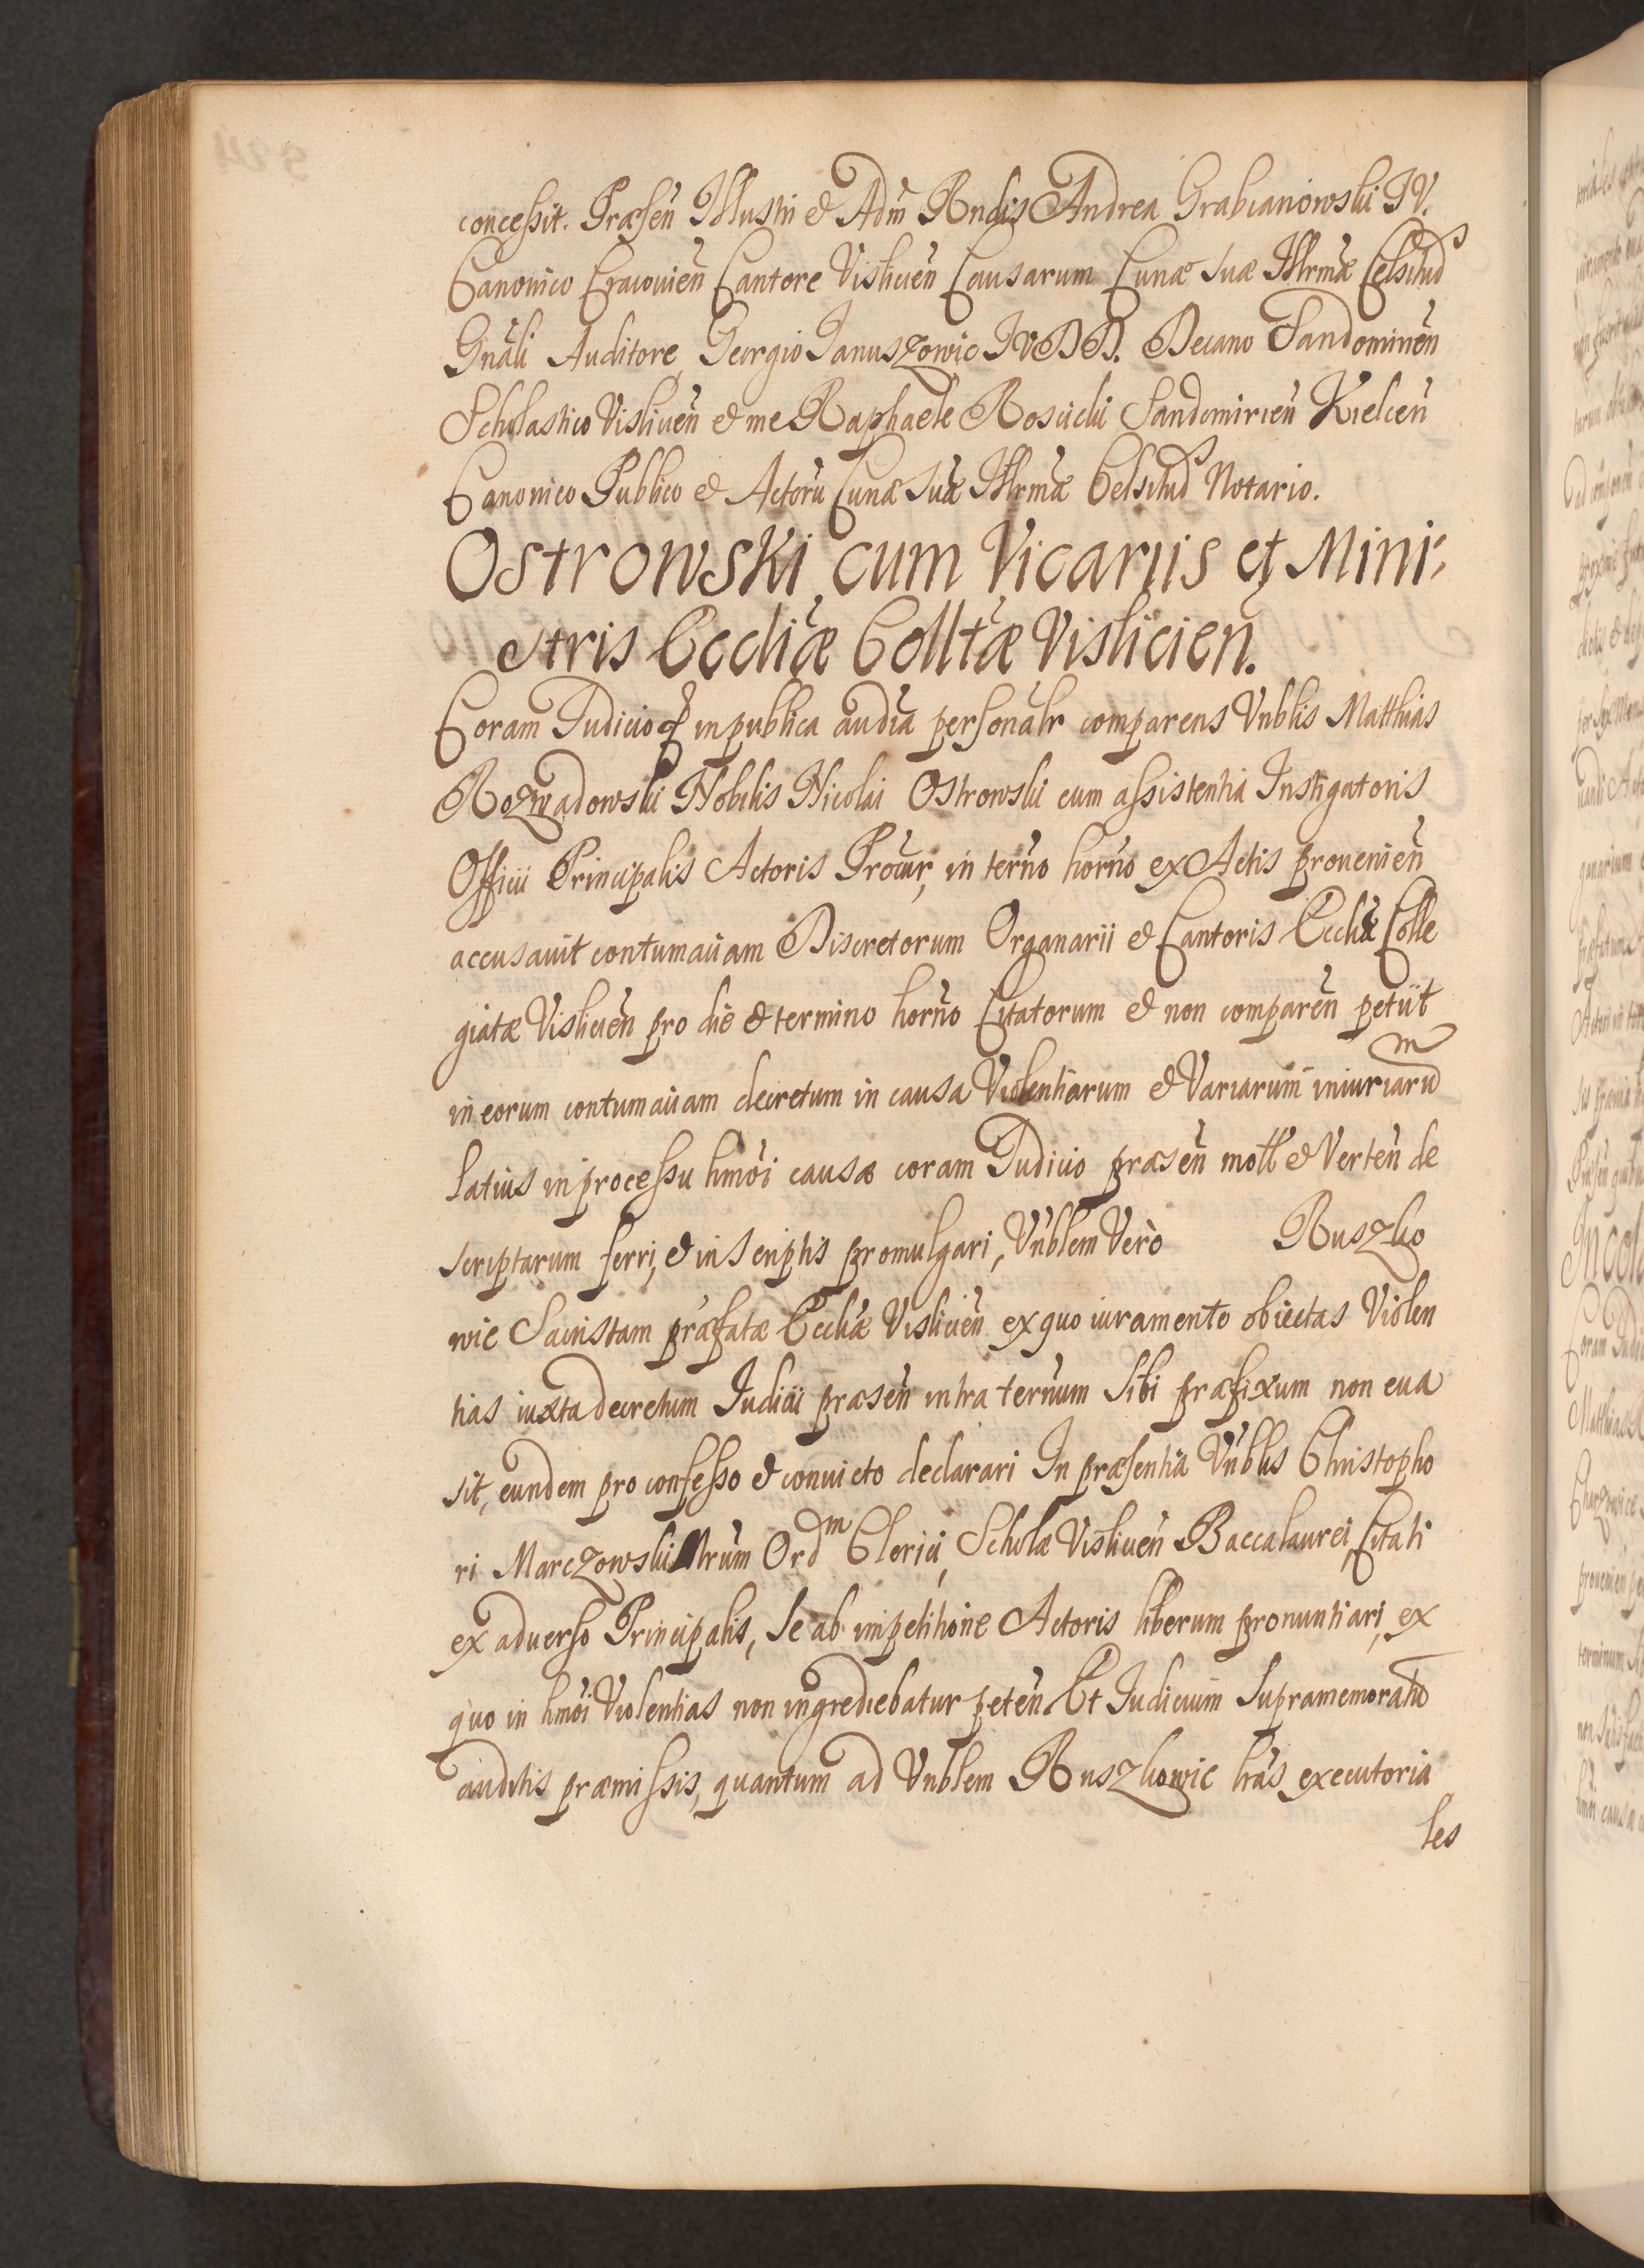 concessit. Præsen Illustri & Adm Rndis Andrea Grabianowski IV.
Canonico Cracovien Cantore Vislicien Causarum Curiæ Suæ Illrmæ Celsitud
Gnali Auditore, Georgio Januszowic IVDD. Decano Sandomirien
Scholastico Vislicien & me Raphaele Rosiicki Sandomirien Kielcen
Canonico Publico & Actoru Curiæ Suæ Illrmæ Celsitud Notario.
Ostrowski cum Vicariis et Mini-
stris Eccliæ Colltæ Vislicien.
Coram Judicio q in publica audia personalr comparens Vnblis Matthias
Rozwadowski Nobilis Nicolai Ostrowski cum assistentia Instigatoris
Officii Principalis Actoris Procur, in terno horno ex Actis provenien
accusavit contumaciam Discretorum Organarii & Cantoris Eccliæ Colle
giatæ Vislicien pro die & termino horno Citatorum & non comparen petiit
in eorum contumaciam decretum in causa Violentiarum & Variarum iniuriarum
latius in processu hmoi causæ coram Judicio præsen mott & Verten de
scriptarum ferri, & in scriptis promulgari, Vnblem Verò Ruszko
wic Sacristam præfatæ Eccliæ Vislicien ex quo iuramento obiectas Violen
tias iuxta decretum Judicii præsen intra ternum Sibi præfixum non eva
sit, eundem pro confesso & convicto declarari In præsentia Vnblis Christopho
ri Marczowski Mrum Ordm Clerici, Scholæ Vislicien Baccalaurei, Citati
ex adverso Principalis, Se ab impetitione Actoris liberum pronuntiari, ex
quo in hmoi Violentias non ingrediebatur peten Et Judicium Supramemoratu
auditis præmissis, quantum ad Vnblem Ruszkowic lras executoria
les